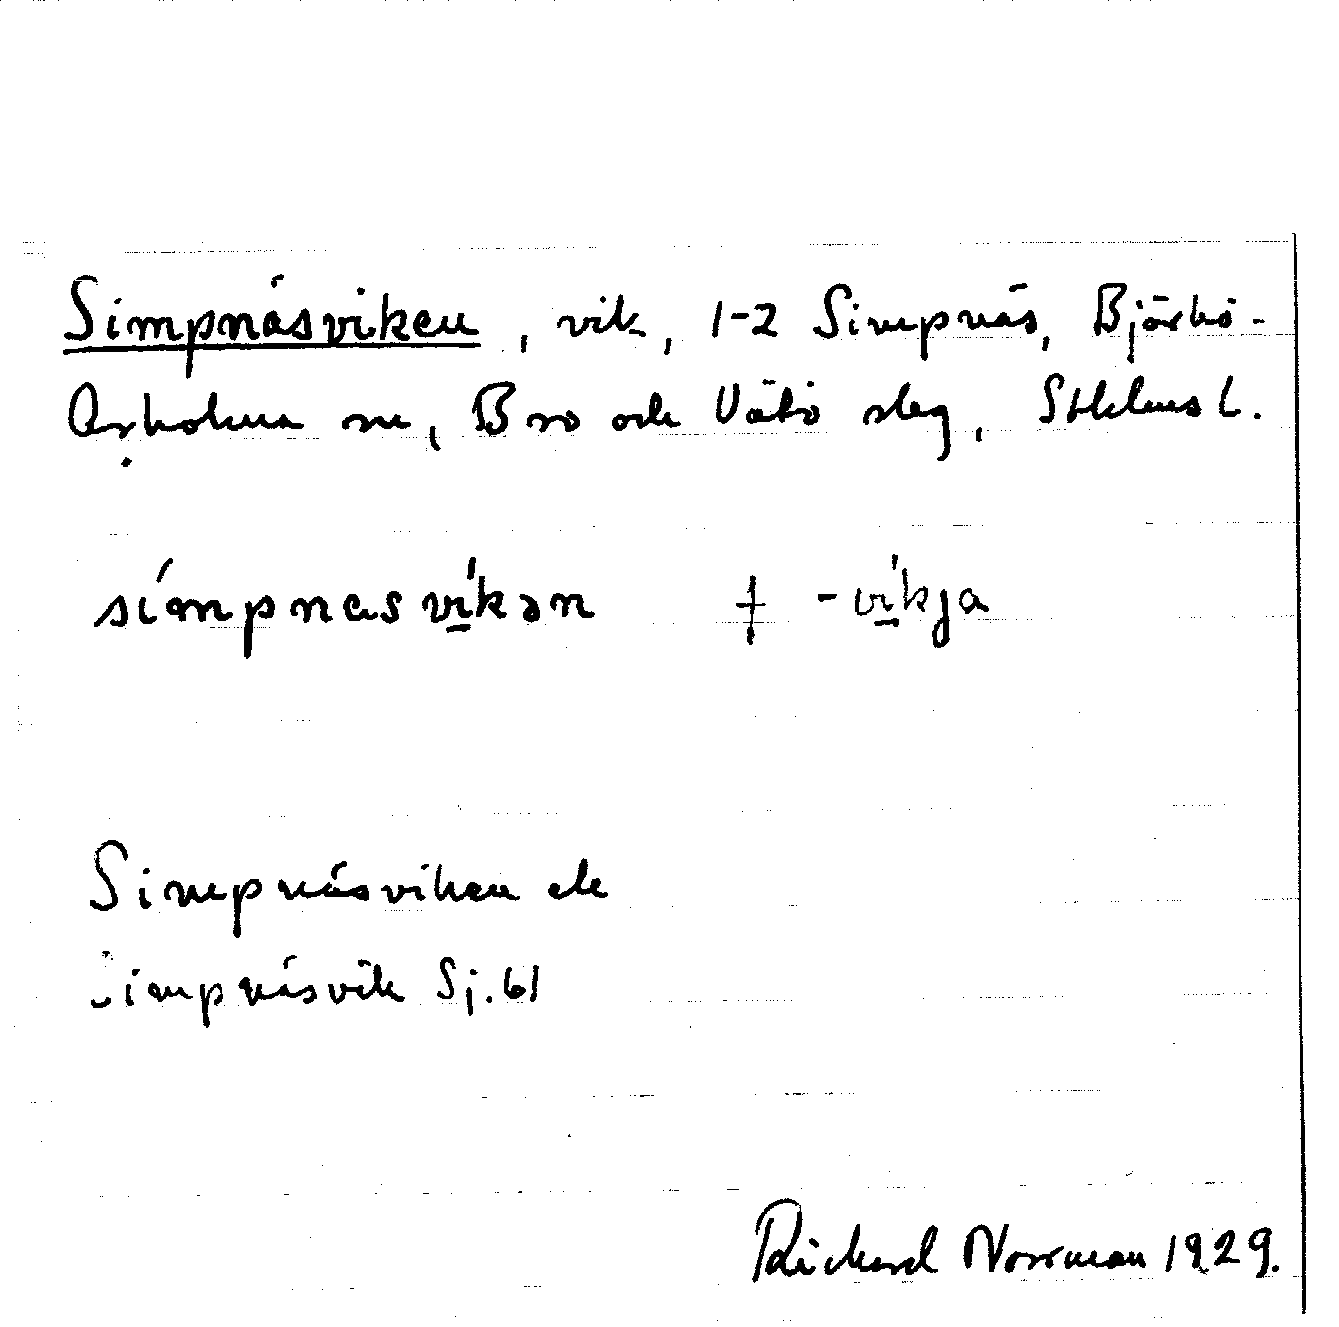 Simpnäsviken, vik, 1-2 Simpnäs, Björkö-
Arholma sn, Bro och Vätö slag, Sthlms l.
símpnasvíkən ‡ -víkja
Simpnäsviken ek
Simpnäsvik Sj. 61
Rickard Norrman 1929.